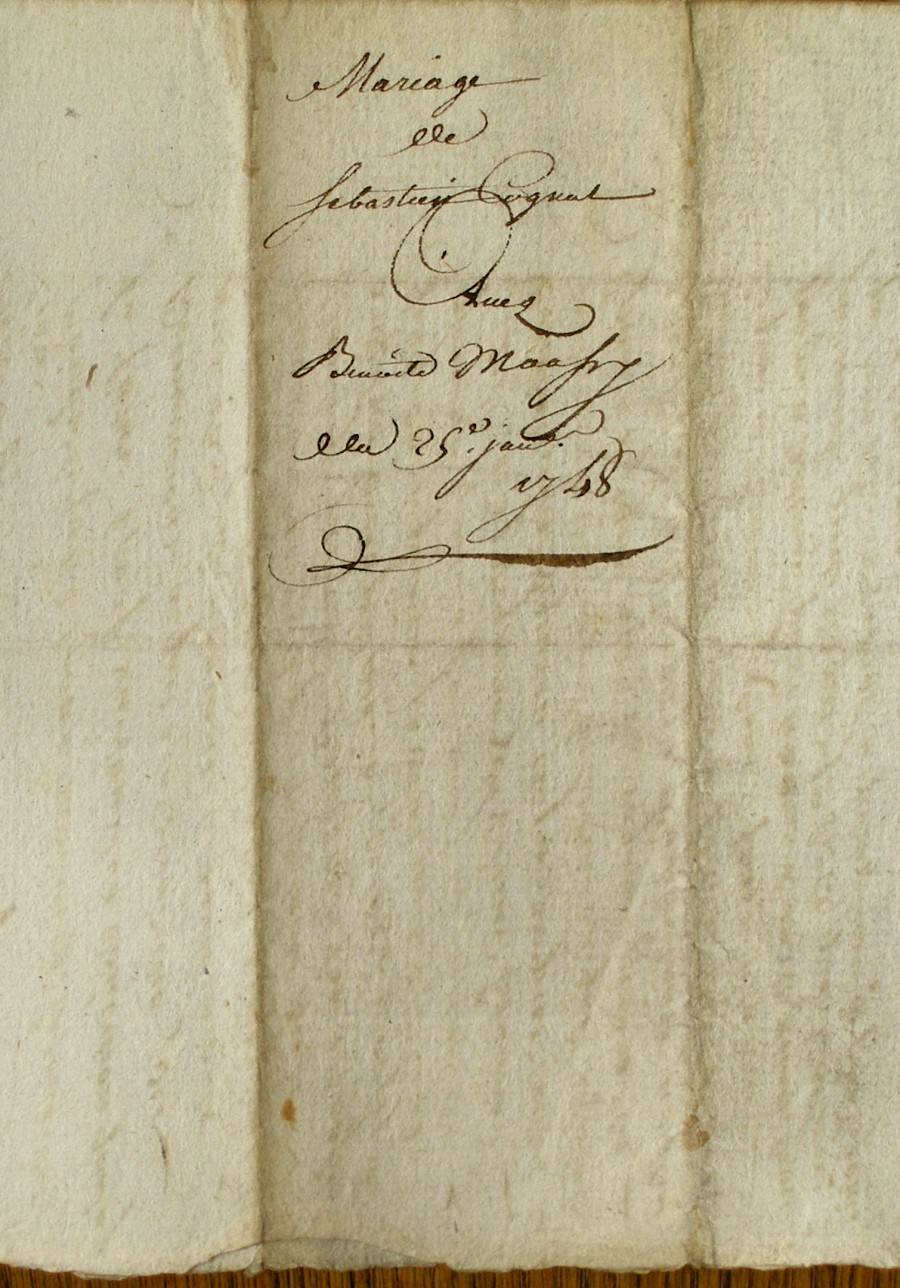 Mariage
de
Sebastien Cognat
Avec
Benoite Maassy
du 25.e janv.r
1748